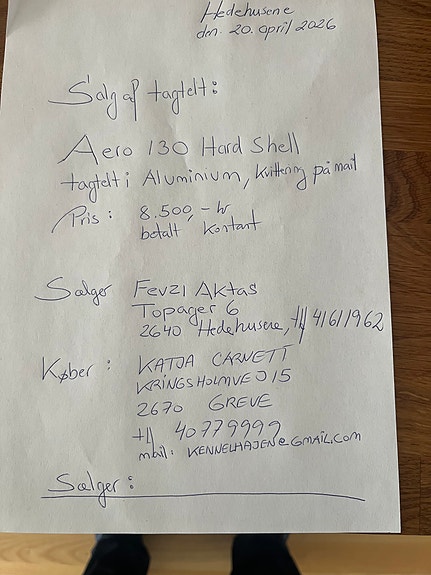 Hedehusene
dm. 20. april 2026
Salg af tagtelt:
Aero 130 Hard Shell
tagtelt i Aluminium, kvittering på mail
Pris: 8.500,- kr
betalt kontant
Sælger Fevzi Aktas
Topager 6
2640 Hedehusene, tlf 41611962
Køber: KATJA CARNETT
KRINGSHOLMVEJ 15
2670 GREVE
tlf 40779999
mail: KENNELHAJEN@GMAIL.COM
Sælger: